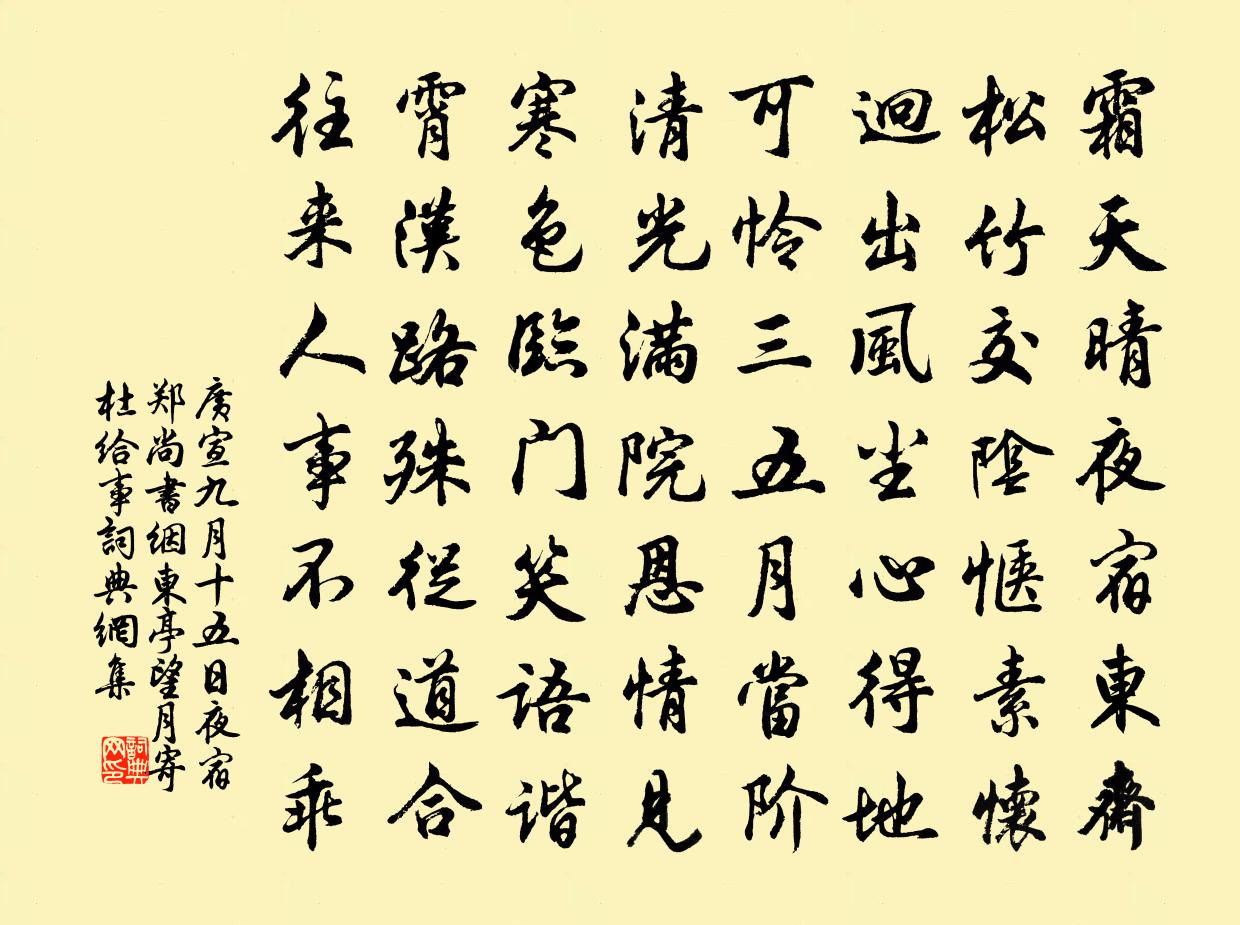 霜天晴夜宿東齋
松竹交陰愜素懷
迥出風尘心得地
可怜三五月當阶
清光滿院恩情見
寒色臨门笑語谐
霄漢路殊從道合
往来人事不相乖
廣宣九月十五日夜宿
郑尚書絪東亭望月寄
杜给事詞典網集
詞典
网印